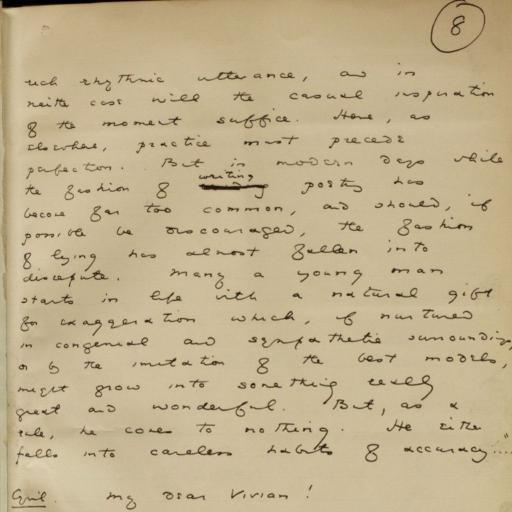 8
rich rhythmic utterance, and in
neither case will the casual inspiration
of the moment suffice. Here, as
elsewhere, practice must precede
perfection. But in modern days while
the fashion of writing poetry has
become far too common, and should, if
possible be discouraged, the fashion
of lying has almost fallen into
disrepute. Many a young man
starts in life with a natural gift
for exaggeration which, if nurtured
in congenial and sympathetic surroundings,
or by the imitation of the best models,
might grow into something really
great and wonderful. But, as a
rule, he comes to nothing. He either
falls into careless habits of accuracy...."
Cyril. My dear Vivian!